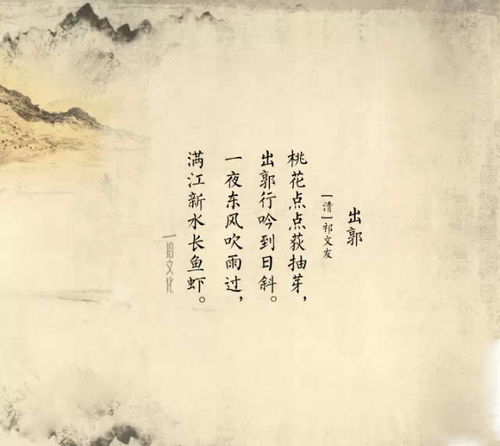 出郭
［清］祁文友
桃花点点荻抽芽，
出郭行吟到日斜。
一夜东风吹雨过，
满江新水长鱼虾。
一拾文化